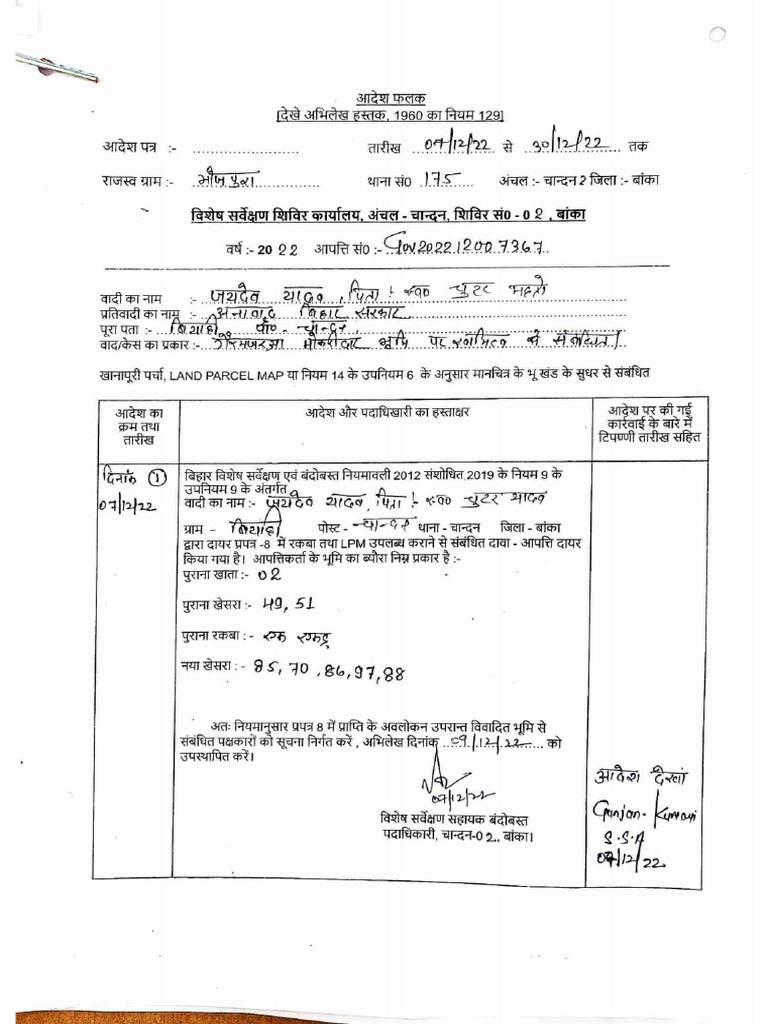 आदेश फलक
[देखे अभिलेख हस्तक, 1960 का नियम 129]
आदेश पत्र :- ........................... तारीख 07/12/22 से 30/12/22 तक
राजस्व ग्राम :- भोजपुरा थाना सं0 175 अंचल :- चान्दन 2 जिला :- बांका
विशेष सर्वेक्षण शिविर कार्यालय, अंचल - चान्दन, शिविर सं0 - 02, बांका
वर्ष :- 2022 आपत्ति सं0 :- Gov202212007367
वादी का नाम :- जयदेव यादव, पिता : स्व0 चुटर महतो
प्रतिवादी का नाम :- अनावाद बिहार सरकार
पूरा पता :- बियाही पो0 - चान्दन
वाद/केस का प्रकार :- गैरमजरूआ भूमि पर स्वामित्व से संबंधित।
खानापूरी पर्चा, LAND PARCEL MAP या नियम 14 के उपनियम 6 के अनुसार मानचित्र के भू खंड के सुधर से संबंधित
आदेश का क्रम तथा तारीख
आदेश और पदाधिखारी का हस्ताक्षर
आदेश पर की गई कार्रवाई के बारे में टिपण्णी तारीख सहित
दिनांक ①
07/12/22
बिहार विशेष सर्वेक्षण एवं बंदोबस्त नियमावली 2012 संशोधित,2019 के नियम 9 के
उपनियम 9 के अंतर्गत
वादी का नाम :- जयदेव यादव, पिता : स्व0 चुटर यादव
ग्राम - बियाही पोस्ट - चान्दन थाना - चान्दन जिला - बांका
द्वारा दायर प्रपत्र -8 में रकबा तथा LPM उपलब्ध कराने से संबंधित दावा - आपत्ति दायर
किया गया है। आपत्तिकर्ता के भूमि का ब्यौरा निम्न प्रकार है :-
पुराना खाता :- 02
पुराना खेसरा :- 49, 51
पुराना रकबा :- एक एकड़
नया खेसरा :- 85, 70, 86, 97, 88
अतः नियमानुसार प्रपत्र 8 में प्राप्ति के अवलोकन उपरान्त विवादित भूमि से
संबंधित पक्षकारों को सूचना निर्गत करें , अभिलेख दिनांक 09/12/22 को
उपस्थापित करें।
07/12/22
विशेष सर्वेक्षण सहायक बंदोबस्त
पदाधिकारी, चान्दन-02, बांका।
आदेश देखा
Gunjan Kumari
S.S.A
07/12/22